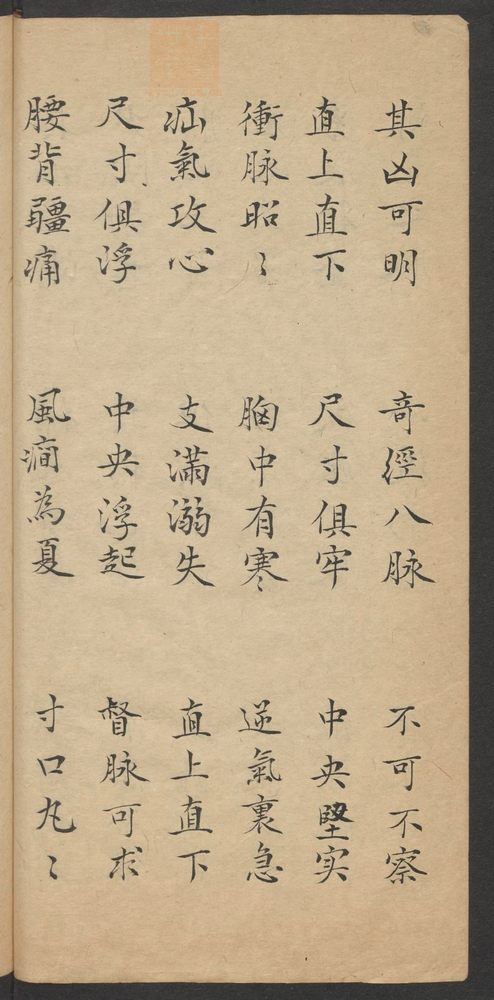 其凶可明 奇經八脉 不可不察
直上直下 尺寸俱牢 中央堅实
衝脉昭〻 胸中有寒 逆氣裏急
疝氣攻心 支滿溺失 直上直下
尺寸俱浮 中央浮起 督脉可求
腰背疆痛 風癎為夏 寸口丸〻